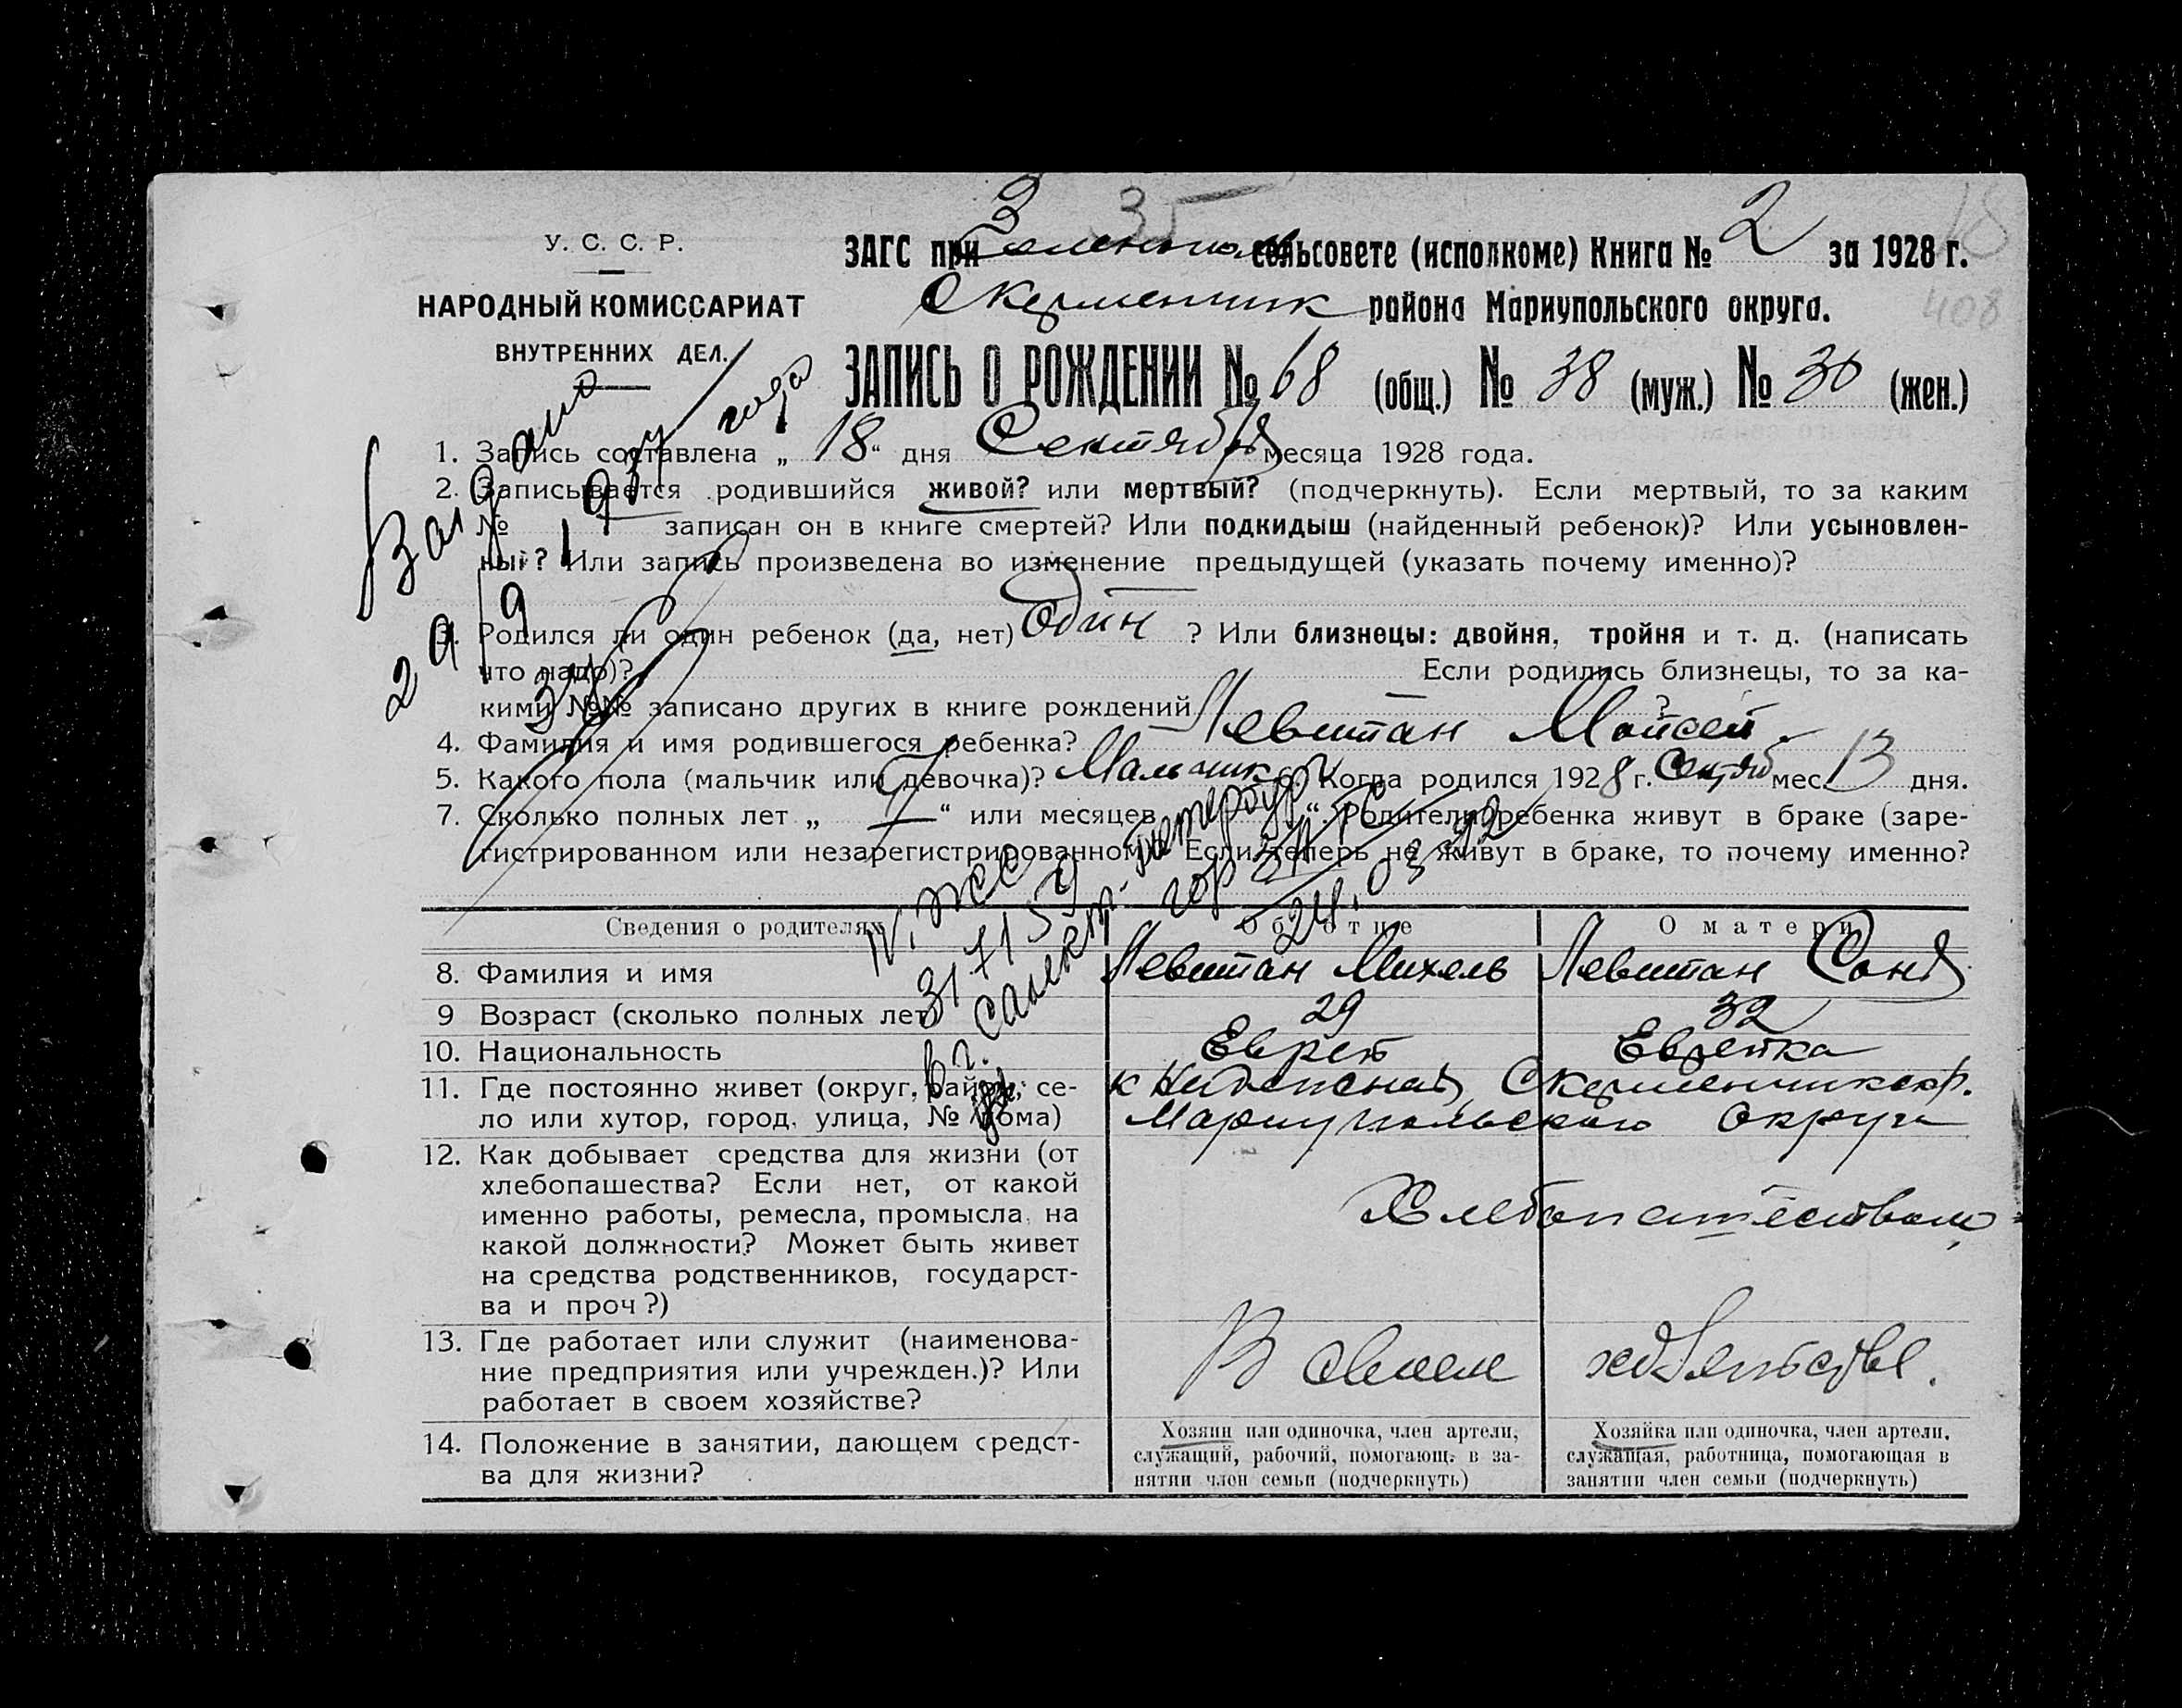 35
18
408
У. С. С. Р.
НАРОДНЫЙ КОМИССАРИАТ
ВНУТРЕННИХ ДЕЛ.
ЗАГС при сельсовете (исполкоме) Книга № 2 за 1928 г.
района Мариупольского округа.
ЗАПИСЬ О РОЖДЕНИИ № 68 (общ.) № 38 (муж.) № 30 (жен.)
1. Запись составлена „ 18 “ дня Сентября месяца 1928 года.
2. Записывается родившийся живой? или мертвый? (подчеркнуть). Если мертвый, то за каким
№ записан он в книге смертей? Или подкидыш (найденный ребенок)? Или усыновлен-
ный? Или запись произведена во изменение предыдущей (указать почему именно)?
3. Родился ли один ребенок (да, нет) один ? Или близнецы: двойня, тройня и т. д. (написать
что надо)? Если родились близнецы, то за ка-
кими №№ записано других в книге рождений ?
4. Фамилия и имя родившегося ребенка? Левитан Мойсей
5. Какого пола (мальчик или девочка)? Мальчик 6. Когда родился 1928 г. Сентяб мес. 13 дня.
7. Сколько полных лет „ “ или месяцев „ “. Родители ребенка живут в браке (заре-
гистрированном или незарегистрированном)? Если теперь не живут в браке, то почему именно?
Выдано
29/9 1934 года
IV. ЖС
317159
в г. Санкт-Петербург
гор ЗАГС
24.03.92
Сведения о родителях Об отце О матери
8. Фамилия и имя Левитан Михель Левитан Соня
9 Возраст (сколько полных лет) 29 32
10. Национальность Еврей Еврейка
11. Где постоянно живет (округ, район, се-
ло или хутор, город, улица, № дома) Мариупольского Округа
12. Как добывает средства для жизни (от
хлебопашества? Если нет, от какой
именно работы, ремесла, промысла, на
какой должности? Может быть живет
на средства родственников, государст-
ва и проч?)
Хлебопашеством
13. Где работает или служит (наименова-
ние предприятия или учрежден.)? Или
работает в своем хозяйстве?
В своем хозяйстве.
14. Положение в занятии, дающем средст-
ва для жизни?
Хозяин или одиночка, член артели,
служащий, рабочий, помогающ. в за-
нятии член семьи (подчеркнуть)
Хозяйка или одиночка, член артели,
служащая, работница, помогающая в
занятии член семьи (подчеркнуть)